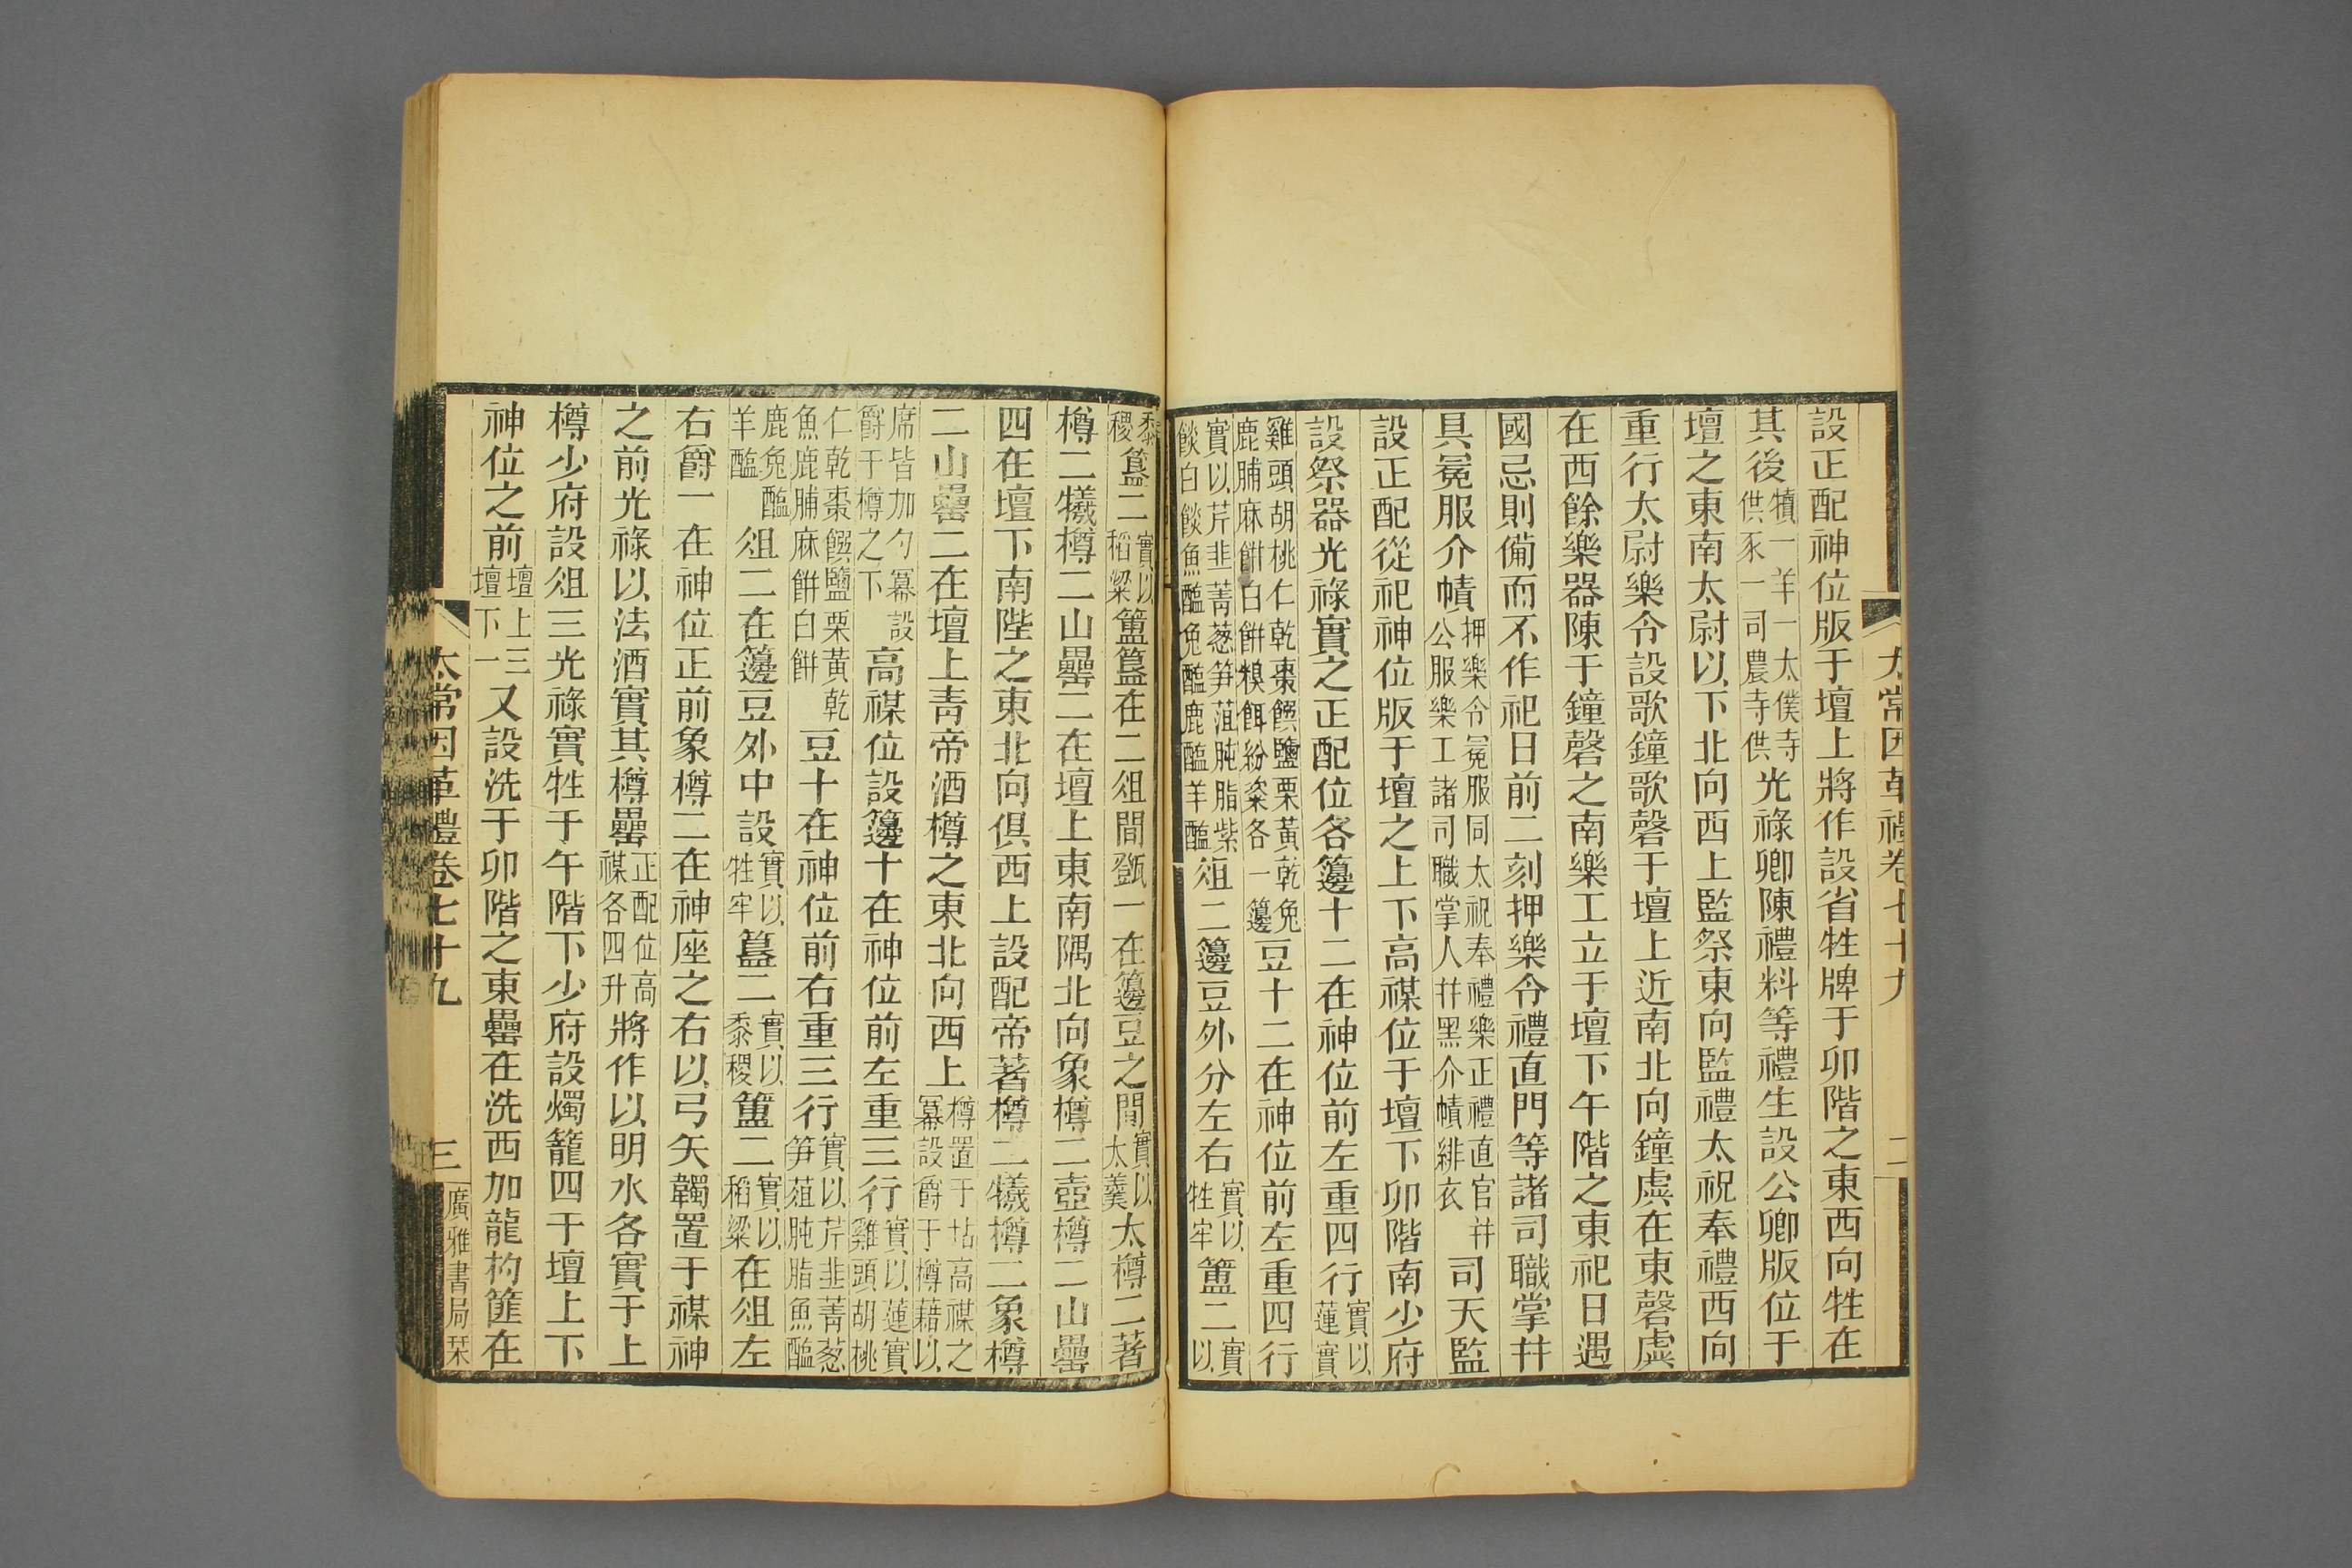 太常因革禮卷七十九　二
設正配神位版于壇上將作設省牲牌于卯階之東西向牲在
其後犢一羊一太僕寺供豕一司農寺供光祿卿陳禮料等禮生設公卿版位于
壇之東南太尉以下北向西上監祭東向監禮太祝奉禮西向
重行太尉樂令設歌鐘歌磬于壇上近南北向鐘虡在東磬虡
在西餘樂器陳于鐘磬之南樂工立于壇下午階之東祀日遇
國忌則備而不作祀日前二刻押樂令禮直門等諸司職掌幷
具冕服介幘押樂令冕服同太祝奉禮樂正禮直官幷公服樂工諸司職掌人幷黑介幘緋衣司天監
設正配從祀神位版于壇之上下高禖位于壇下卯階南少府
設祭器光祿實之正配位各籩十二在神位前左重四行實以蓮實
雞頭胡桃仁乾棗饌鹽栗黃乾兔鹿脯麻餅白餅糗餌粉粢各一籩豆十二在神位前左重四行
實以芹韭菁葱笋菹肫脂紫餤白餤魚醢兔醢鹿醢羊醢俎二籩豆外分左右實以牲牢簠二實以
黍稷簋二實以稻粱簠簋在二俎間㽅一在籩豆之間實以太羹太樽二著
樽二犧樽二山罍二在壇上東南隅北向象樽二壺樽二山罍
四在壇下南陛之東北向俱西上設配帝著樽二犧樽二象樽
二山罍二在壇上青帝酒樽之東北向西上樽置于坫高禖之冪設爵于樽藉以
席皆加勺冪設爵于樽之下高禖位設籩十在神位前左重三行實以蓮實雞頭胡桃
仁乾棗饌鹽栗黃乾魚鹿脯麻餅白餅豆十在神位前右重三行實以芹韭菁葱笋菹肫脂魚醢
鹿兔醢羊醢俎二在籩豆外中設實以牲牢簋二實以黍稷簠二實以稻粱在俎左
右爵一在神位正前象樽二在神座之右以弓矢韣置于禖神
之前光祿以法酒實其樽罍正配位高禖各四升將作以明水各實于上
樽少府設俎三光祿實牲于午階下少府設燭籠四于壇上下
神位之前壇上三壇下一又設洗于卯階之東罍在洗西加龍杓篚在
太常因革禮卷七十九　三　廣雅書局栞